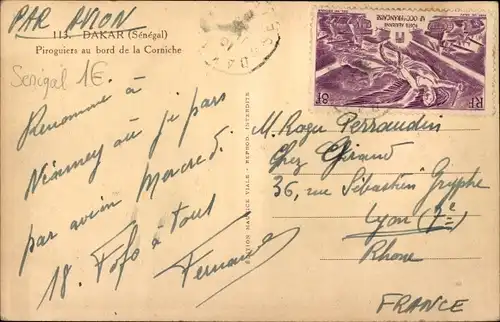 PAR AVION
113. DAKAR (Sénégal)
Piroguiers au bord de la Corniche
Senegal 1€
Renommé à
Niamey où je pars
par avion Mercredi
18. Fofo à tous
Fernand
EDITION MAURICE VIALE - REPROD. INTERDITE
POSTE AERIENNE
AF OCCID FRANÇAISE
RF
8F
M. Roger Perraudin
Chez Giraud
36, rue Sébastien Gryphe
Lyon (7e)
Rhone
FRANCE